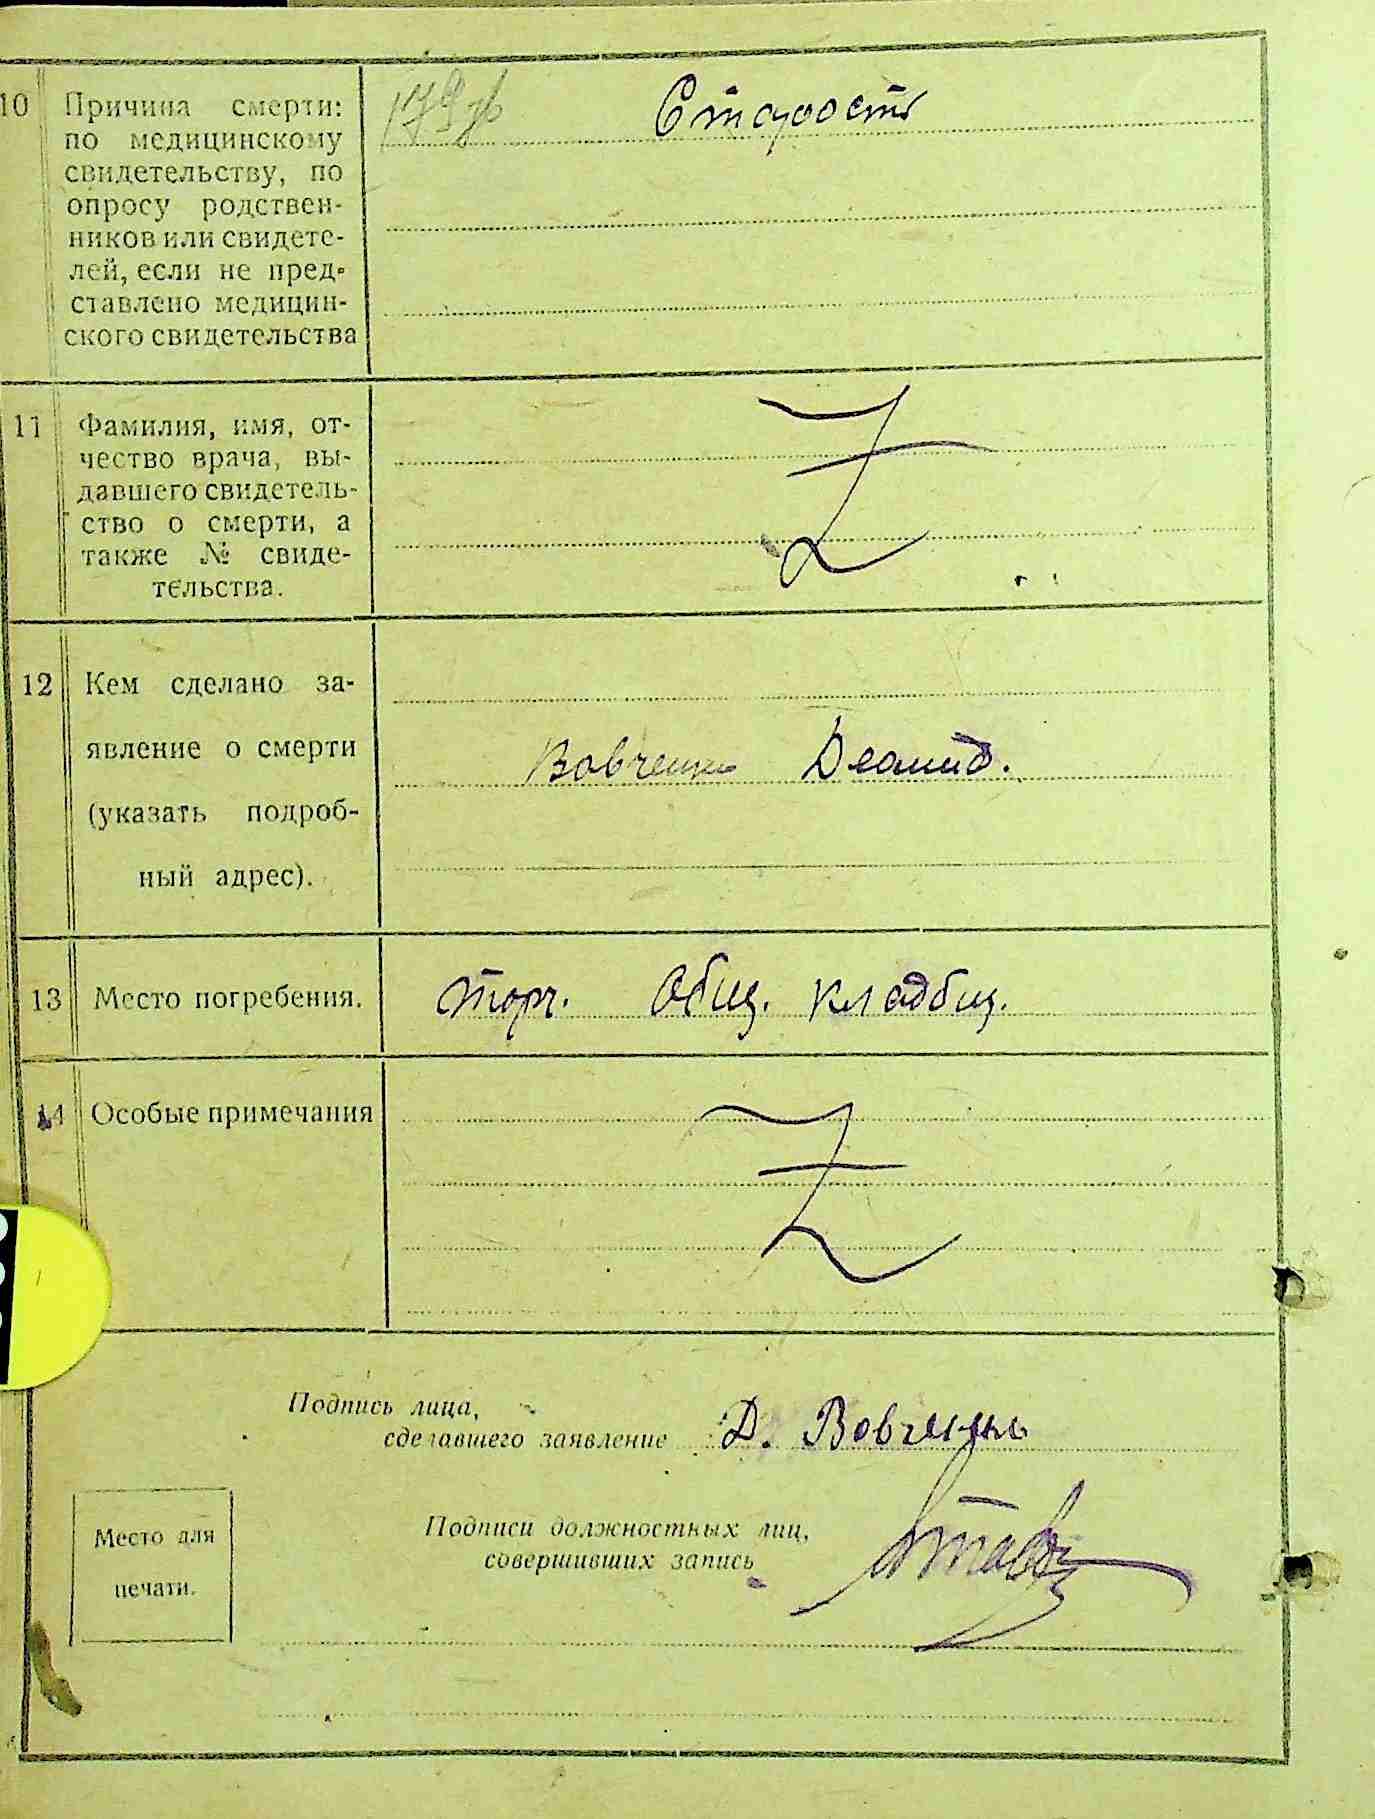 10 Причина смерти: Старость
по медицинскому
свидетельству, по
опросу родствен-
ников или свидете-
лей, если не пред-
ставлено медицин-
ского свидетельства
11 Фамилия, имя, от-
чество врача, вы-
давшего свидетель-
ство о смерти, а
также № свиде-
тельства.
12 Кем сделано за-
явление о смерти
(указать подроб-
ный адрес).
Вовченко
13 Место погребения. Торч. Общ. кладбищ.
14 Особые примечания
Подпись лица,
сделавшего заявление Д. Вовченко
Подписи должностных лиц,
совершивших запись
Место для
печати.